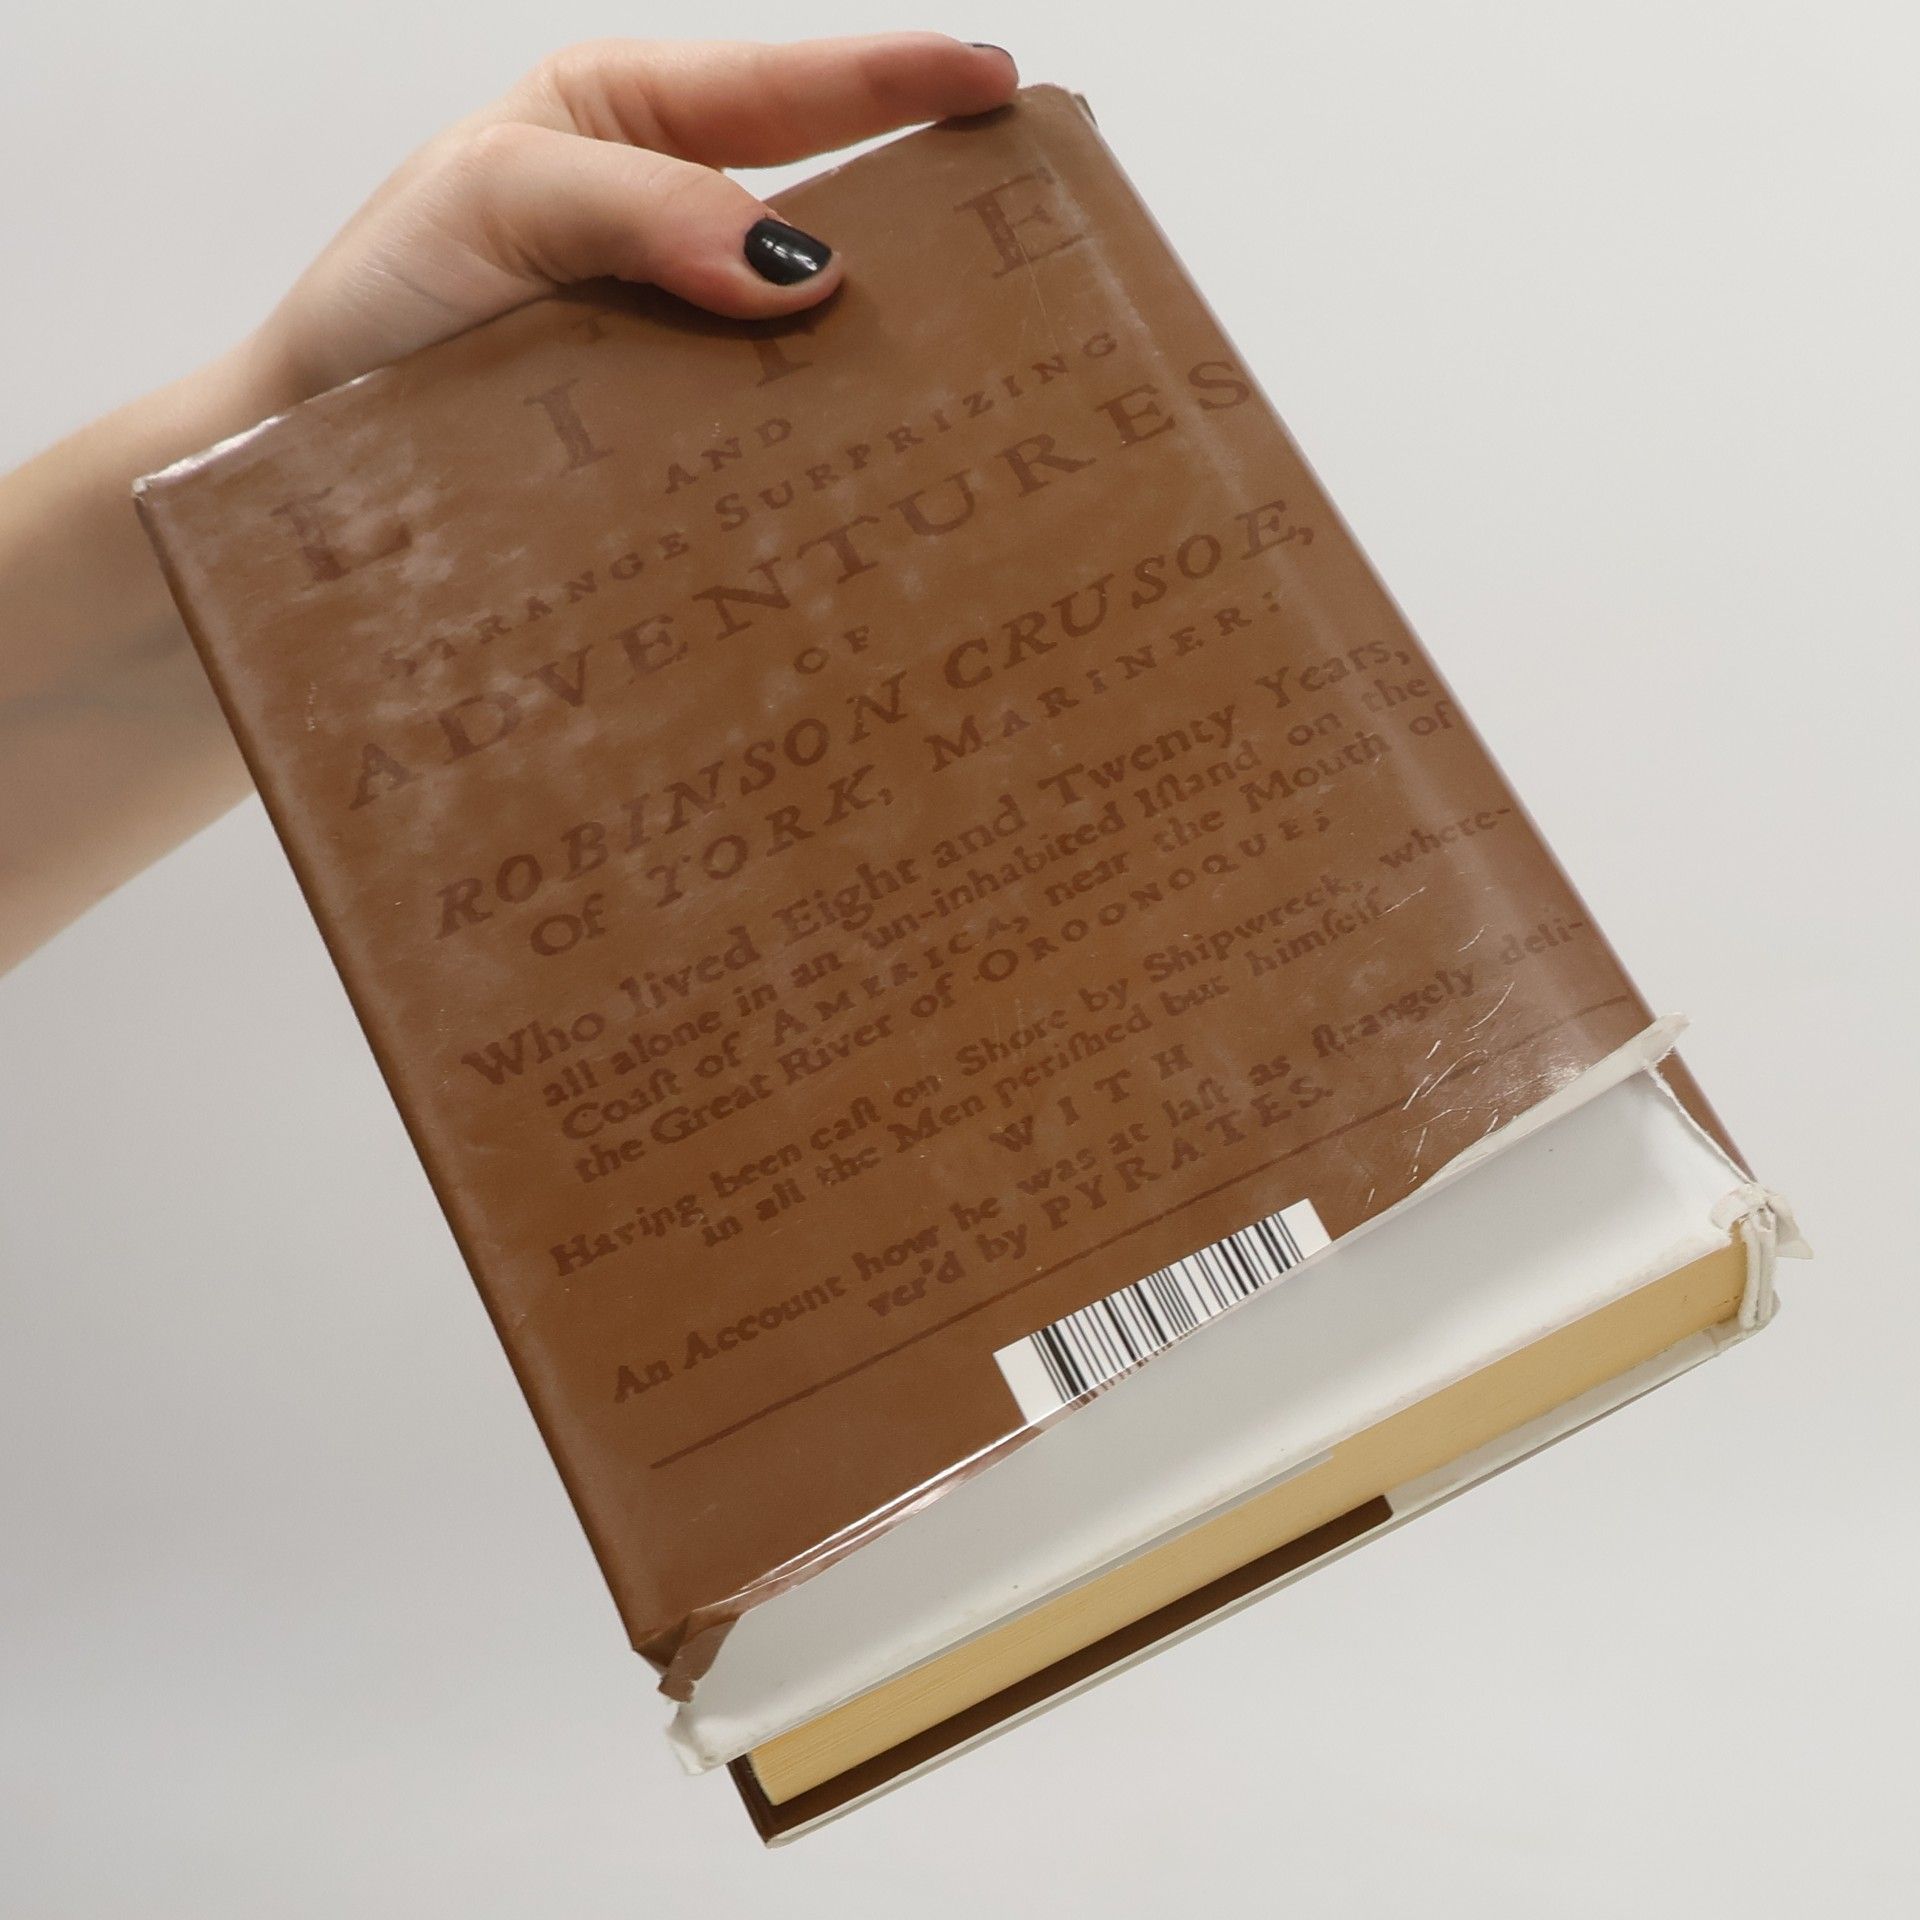 L I F E
AND
STRANGE SURPRIZING
ADVENTURES
OF
ROBINSON CRUSOE,
Of YORK, MARINER:
Who lived Eight and Twenty Years,
all alone in an un-inhabited Iſland on the
Coaſt of AMERICA, near the Mouth of
the Great River of OROONOQUE;
Having been caſt on Shore by Shipwreck, where-
in all the Men periſhed but himſelf.
WITH
An Account how he was at laſt as ſtrangely deli-
ver'd by PYRATES.